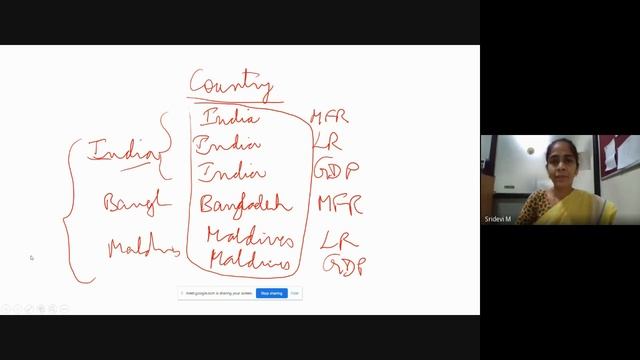 Country
India MFR
India India LR
India GDP
Bangl Bangladesh MFR
Maldives Maldives LR
Maldives GDP
meet.google.com is sharing your screen. Stop sharing Hide
Sridevi M